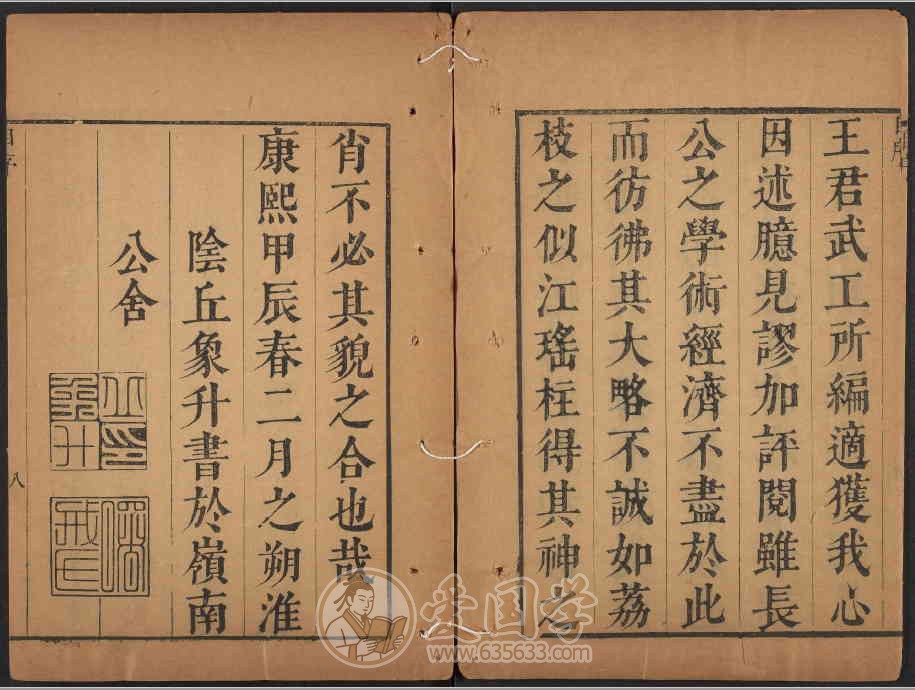 王君武工所編適獲我心
因述臆見謬加評閱雖長
公之學術經濟不盡於此
而彷彿其大略不誠如荔
枝之似江瑤柱得其神之
肖不必其貌之合也哉
康熙甲辰春二月之朔淮
陰丘象升書於嶺南
公舍
八
爱国学
www.635633.com